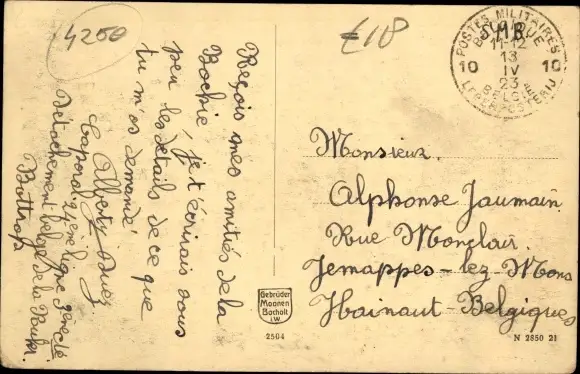 4250
Reçois mes amitiés de la
Bochie, je t'écrirais sous
peu les détails de ce que
tu m'as demandé
Albert
Caporal 24ème ligne 9ème Cie
Détachement belge de la Ruhr.
Bottrop
€18
POSTES MILITAIRES
11-12
13
IV
23
10 10
Monsieur.
Alphonse Jaumain
Rue Monclair
Jemappes-lez Mons
Hainaut-Belgiques
Gebrüder
Maanen
Bocholt
i.W.
2504
N 2850 21